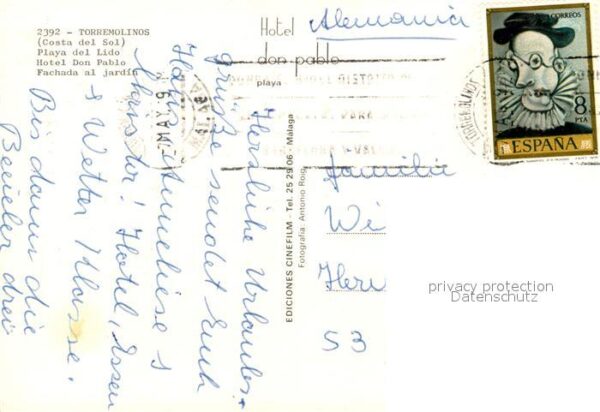 2392 - TORREMOLINOS
(Costa del Sol)
Playa del Lido
Hotel Don Pablo
Fachada al jardin
Hotel
don pablo
playa
Alemania
CORREOS
8
PTA
ESPAÑA
Herzliche Urlaubs-
grüße sendet Euch
Hans, Anneliese &
! Hotel, Essen
& Wetter Klasse.
Bis dann die
drei
EDICIONES CINEFILM - Tel. 25 29 06 - Málaga
Fotografía: Antonio Roig
Familie
Wi
Her
53
privacy protection
Datenschutz